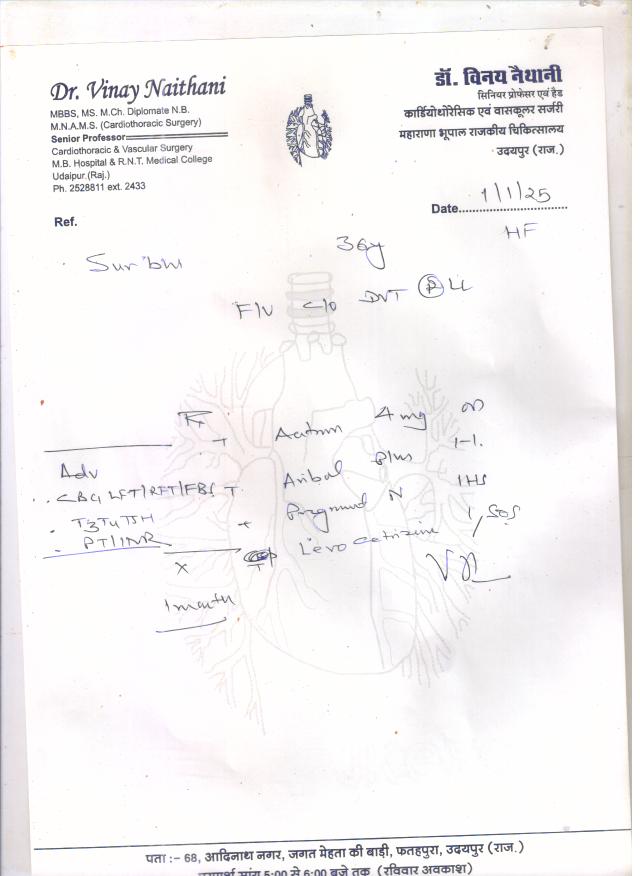 Dr. Vinay Naithani
MBBS, MS. M.Ch. Diplomate N.B.
M.N.A.M.S. (Cardiothoracic Surgery)
Senior Professor
Cardiothoracic & Vascular Surgery
M.B. Hospital & R.N.T. Medical College
Udaipur.(Raj.)
Ph. 2528811 ext. 2433
डॉ. विनय नैथानी
सिनियर प्रोफेसर एवं हैड
कार्डियोथोरेसिक एवं वासकूलर सर्जरी
महाराणा भूपाल राजकीय चिकित्सालय
उदयपुर (राज.)
Date 1/1/25
Ref.
HF
36y
F/U c/o DVT R LL
Rx
4 mg
Plus 1-1
Adv
CBC LFT/RFT/FBS T
N 1HS
- T3T4TSH
- PT/INR
Levocetrizine 1 SOS
x T
1 month
पता :- 68, आदिनाथ नगर, जगत मेहता की बाड़ी, फतहपुरा, उदयपुर (राज.)
5:00 से 6:00 बजे तक (रविवार अवकाश)